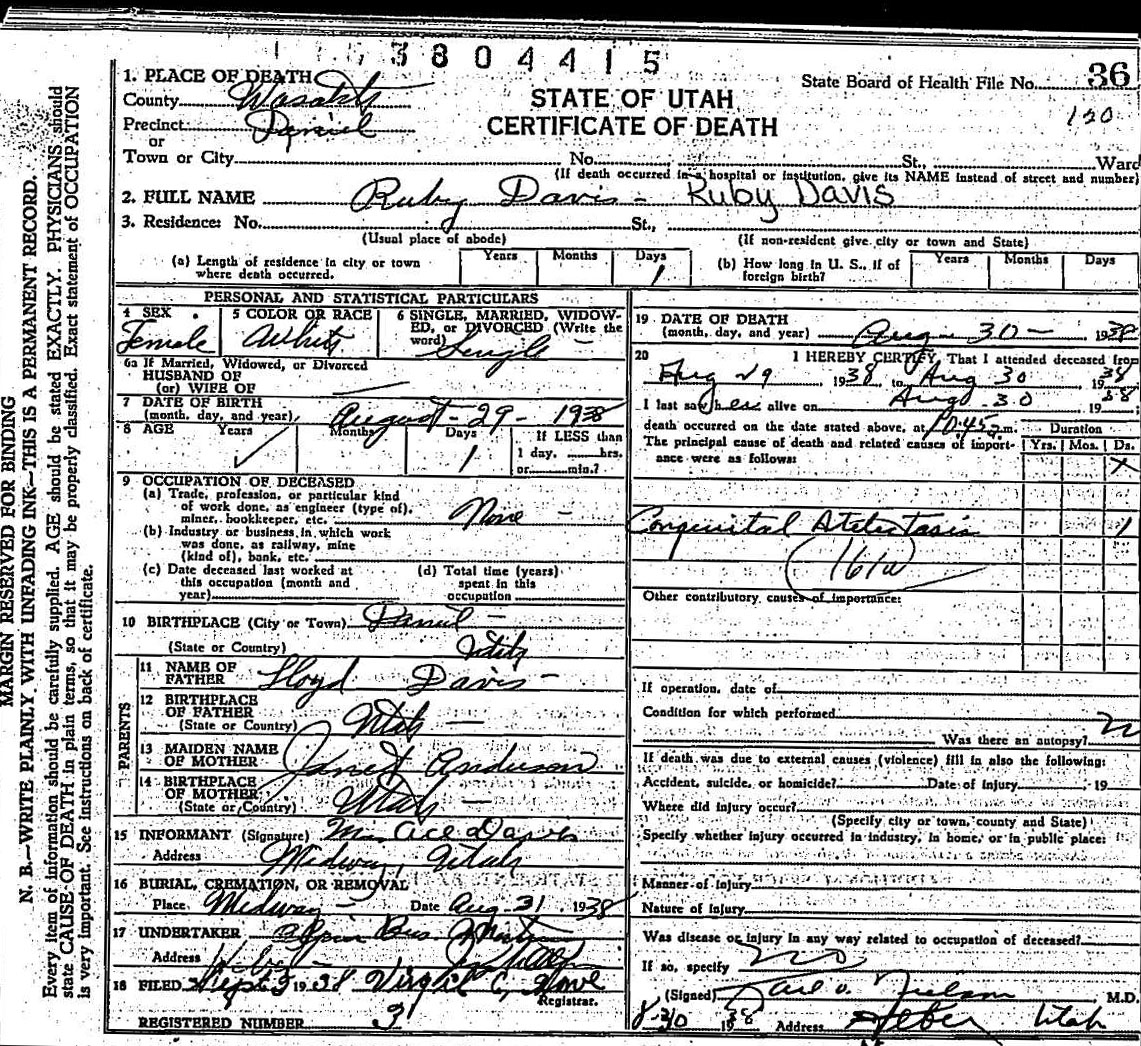 3 8 0 4 4 1 5
1. PLACE OF DEATH
State Board of Health File No. 36
County Wasatch
STATE OF UTAH
120
Precinct Daniel
CERTIFICATE OF DEATH
or
Town or City No. St., Ward
(If death occurred in a hospital or institution, give its NAME instead of street and number)
2. FULL NAME Ruby Davis - Ruby Davis
3. Residence: No. St.,
(Usual place of abode) (If non-resident give city or town and State)
(a) Length of residence in city or town where death occurred. Years Months Days 1
(b) How long in U. S., if of foreign birth? Years Months Days
PERSONAL AND STATISTICAL PARTICULARS
4 SEX Female
5 COLOR OR RACE White
6 SINGLE, MARRIED, WIDOW-
ED, or DIVORCED (Write the
word) Single
6a If Married, Widowed, or Divorced
HUSBAND OF
(or) WIFE OF
7 DATE OF BIRTH
(month, day, and year) August - 29 - 1938
8 AGE Years Months Days 1
If LESS than
1 day, hrs.
or min.?
9 OCCUPATION OF DECEASED
(a) Trade, profession, or particular kind
of work done, as engineer (type of),
miner, bookkeeper, etc. None
(b) Industry or business in which work
was done, as railway, mine
(kind of), bank, etc.
(c) Date deceased last worked at
this occupation (month and
year)
(d) Total time (years)
spent in this
occupation
10 BIRTHPLACE (City or Town) Daniel
(State or Country) Utah
PARENTS
11 NAME OF
FATHER Lloyd Davis
12 BIRTHPLACE
OF FATHER
(State or Country) Utah
13 MAIDEN NAME
OF MOTHER Janet Anderson
14 BIRTHPLACE
OF MOTHER
(State or Country) Utah
15 INFORMANT (Signature) Davis
Address Midway, Utah
16 BURIAL, CREMATION, OR REMOVAL
Place Midway Date Aug. 31, 1938
17 UNDERTAKER
Address Heber
18 FILED Sept 3 1938 Virgil C.
Registrar.
REGISTERED NUMBER 3
19 DATE OF DEATH
(month, day, and year) Aug - 30 - 1938
20 I HEREBY CERTIFY, That I attended deceased from
Aug 29 1938 to Aug 30, 1938
I last saw her alive on Aug 30, 1938
death occurred on the date stated above, at 10:45 a m.
Duration
The principal cause of death and related causes of import-
ance were as follows:
Yrs. Mos. Ds.
X
Congenital Atelectasis 1
(161a)
Other contributory causes of importance:
If operation, date of
Condition for which performed
Was there an autopsy? no
If death was due to external causes (violence) fill in also the following:
Accident, suicide, or homicide? Date of injury , 19
Where did injury occur?
(Specify city or town, county and State)
Specify whether injury occurred in industry, in home, or in public place:
Manner of Injury
Nature of Injury
Was disease or injury in any way related to occupation of deceased?
If so, specify no
(Signed) Karl O. Nielson M.D.
8-30 1938 Address Heber Utah
MARGIN RESERVED FOR BINDING
N. B.—WRITE PLAINLY WITH UNFADING INK—THIS IS A PERMANENT RECORD.
Every item of information should be carefully supplied. AGE should be stated EXACTLY. PHYSICIANS should
state CAUSE OF DEATH in plain terms, so that it may be properly classified. Exact statement of OCCUPATION
is very important. See instructions on back of certificate.